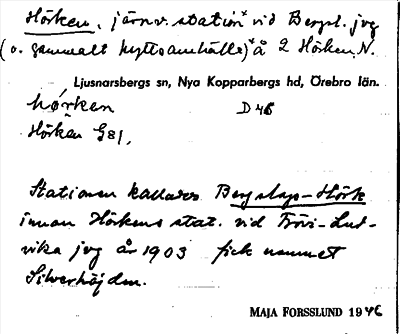 Hörken, järnv. station* vid Bergsl. jvg
(o. gammalt hyttsamhälle)* å 2 Hörken, N.
Ljusnarsbergs sn, Nya Kopparbergs hd, Örebro län.
hørken D 48
Hörken G81.
Stationen kallades Bergslags-Hörk
innan Hörkens stat. vid Frövi-Lud-
vika jvg år 1903 fick namnet
Silverhöjden.
MAJA FORSSLUND 1946